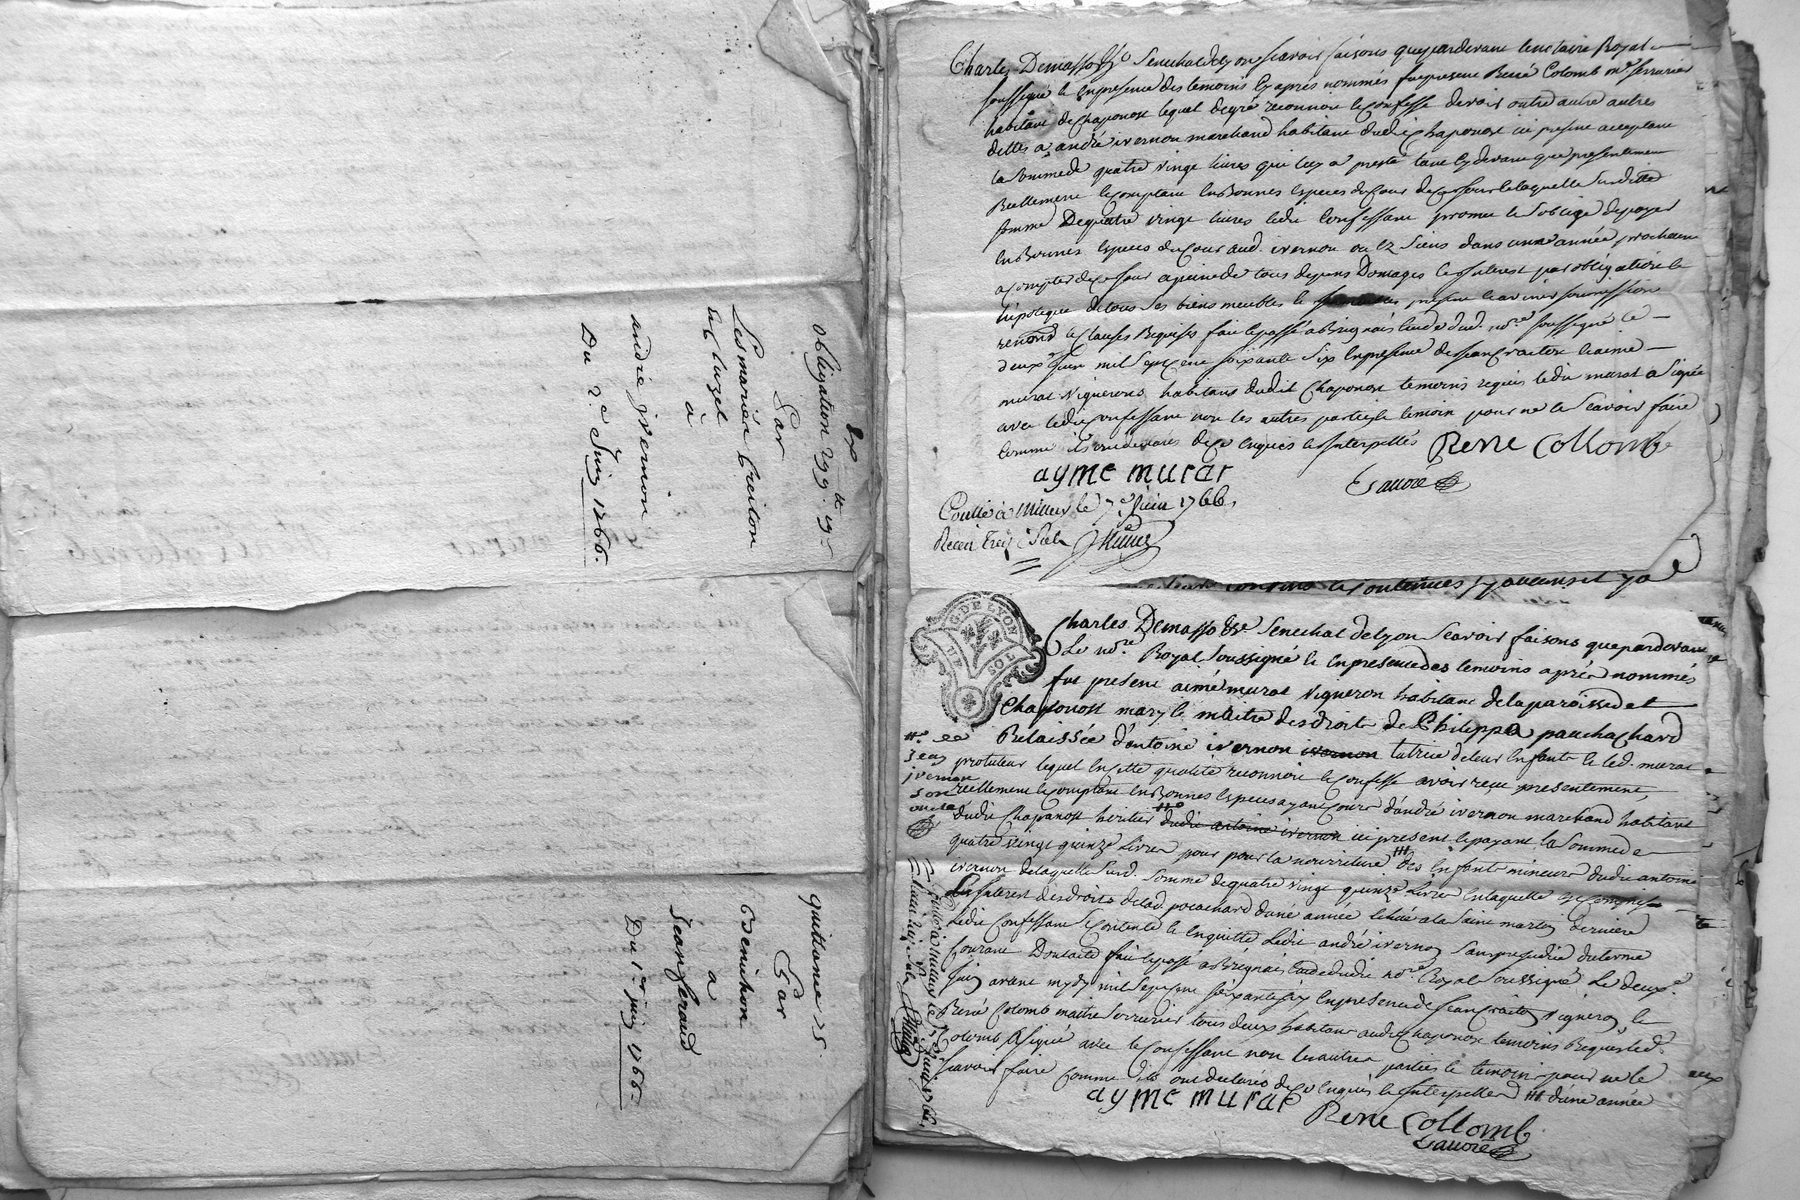 obligation
Par
Les mariés Creiton
et Cluzel
à
andré jvernon
Du 2e Juin 1766.
quittance 25
Par
Benichon
a
Jean feraud
Du 1er juin 1766.
Charles Demasso Senechal de Lyon sçavoir faisons que pardevant le notaire Royal
soussigné & En presence des temoins cy apres nommés fut present René Colomb me serrurier
habitant de Chaponost lequel de gré reconnoit & Confesse devoir outre autre autres
dettes a andré ivernon marchand habitant dudit Chaponost ici present acceptant
la somme de quatre vingt livres qui luy a presté tant cy devant que presentement
Reellement & Comptant En Bonnes Especes du Cours de ce Jour de laquelle Susditte
somme De quatre vingt livres ledit Confessant promet & s'oblige de payer
En Bonnes Especes du Cours aud. ivernon ou Es Siens dans une année prochaine
a Compter de ce Jour a peine de tous depens Domages & Interest par obligation &
hipoteque de tous ses biens meubles & present & avenir soumission
renond & Clauses Requises fait & passé a Brignais Etude dud. nore soussigné le
deux Juin mil Sept Cent soixante Six En presence de Jean Craiton & aimé
murat Vignerons habitans dudit Chaponost temoins requis ledit murat a Signé
avec ledit Confessant non les autres parties & temoin pour ne le Scavoir faire
Comme ils ont declaré de ce Enquis & Interpellés René Collomb
aymé murat
Conllé a Millery le 7e Juin 1766.
Recu Treize Sols
G. DE LYON
UN SOL
Charles Demasso &c Senechal de Lyon Scavoir faisons que pardevant
Le nore Royal Soussigné & En presence des temoins après nommés
fut present aimé murat Vigneron habitant de la paroisse de
Chaponost mary & maitre des droits de Philippa pauchachard
Relaissée d'antoine ivernon ivernon tutrice de leur Enfants & led. murat
protuteur lequel En cette qualité reconnoit & Confesse avoir reçu presentement,
reellement & Comptant En Bonnes Especes ayant Cours d'andré ivernon marchand habitant
dudit Chaponost heritier dudit antoine ivernon ici present & payant la Somme de
quatre vingt quinze Livres pour pour la nourriture des Enfants mineurs dudit antoine
ivernon de laquelle Susd. Somme de quatre vingt quinze Livres En laquelle Est Compris
Interest des droits de lad. pocachard d'une année Echue a la Saint martin derniere
Ledit Confessant Se Contente & En quitte Ledit andré ivernon Sans prejudice du terme
Courant Dont acte fait & passé a Brignais Etude dudit nore Royal Soussigné Le deuxe
Juin avant midy mil Sept cent Soixante six En presence de Jean Craiton Vigneron &
René Colomb maitre Serrurier tous deux habitant audit Chaponost temoins Requis led.
Colomb a Signé avec le Confessant non les autres parties & temoin pour ne le
scavoir faire Comme ils ont declaré de ce Enquis & Interpellés # d'une année
aymé murat
René Collomb
# de
Jean
jvernon
son